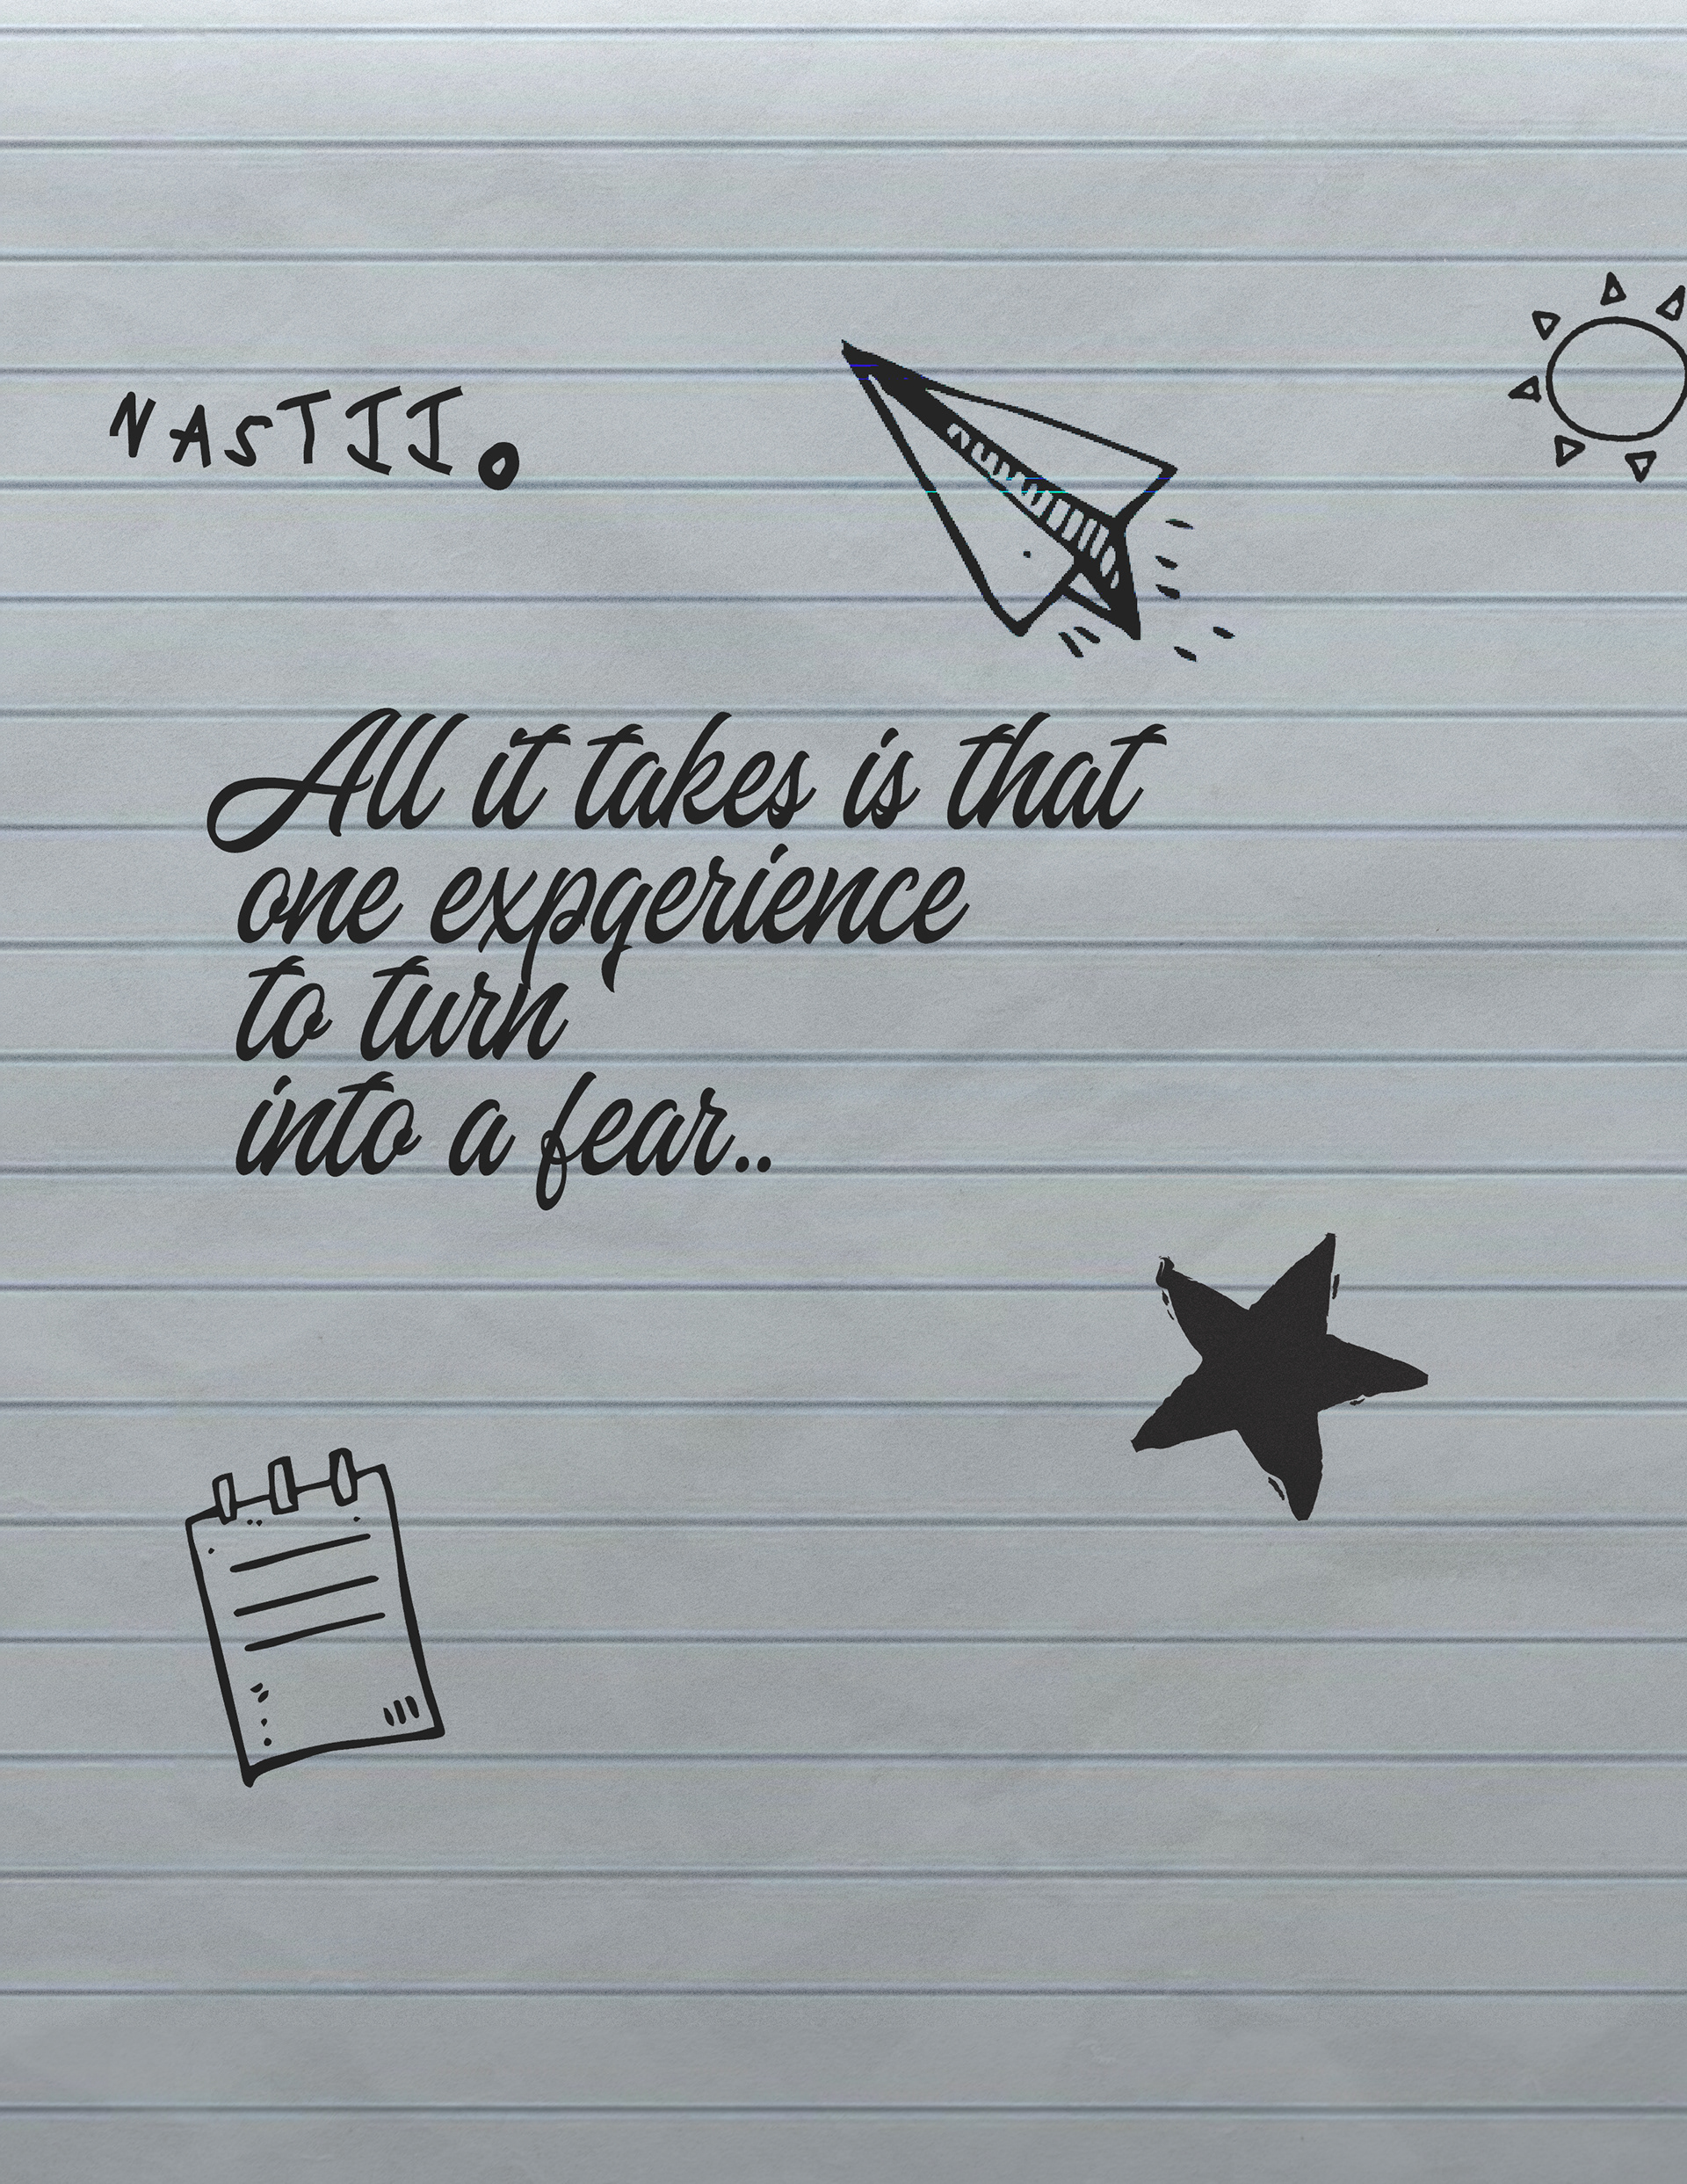 NASTJJ.
All it takes is that
one expqerience
to turn
into a fear..